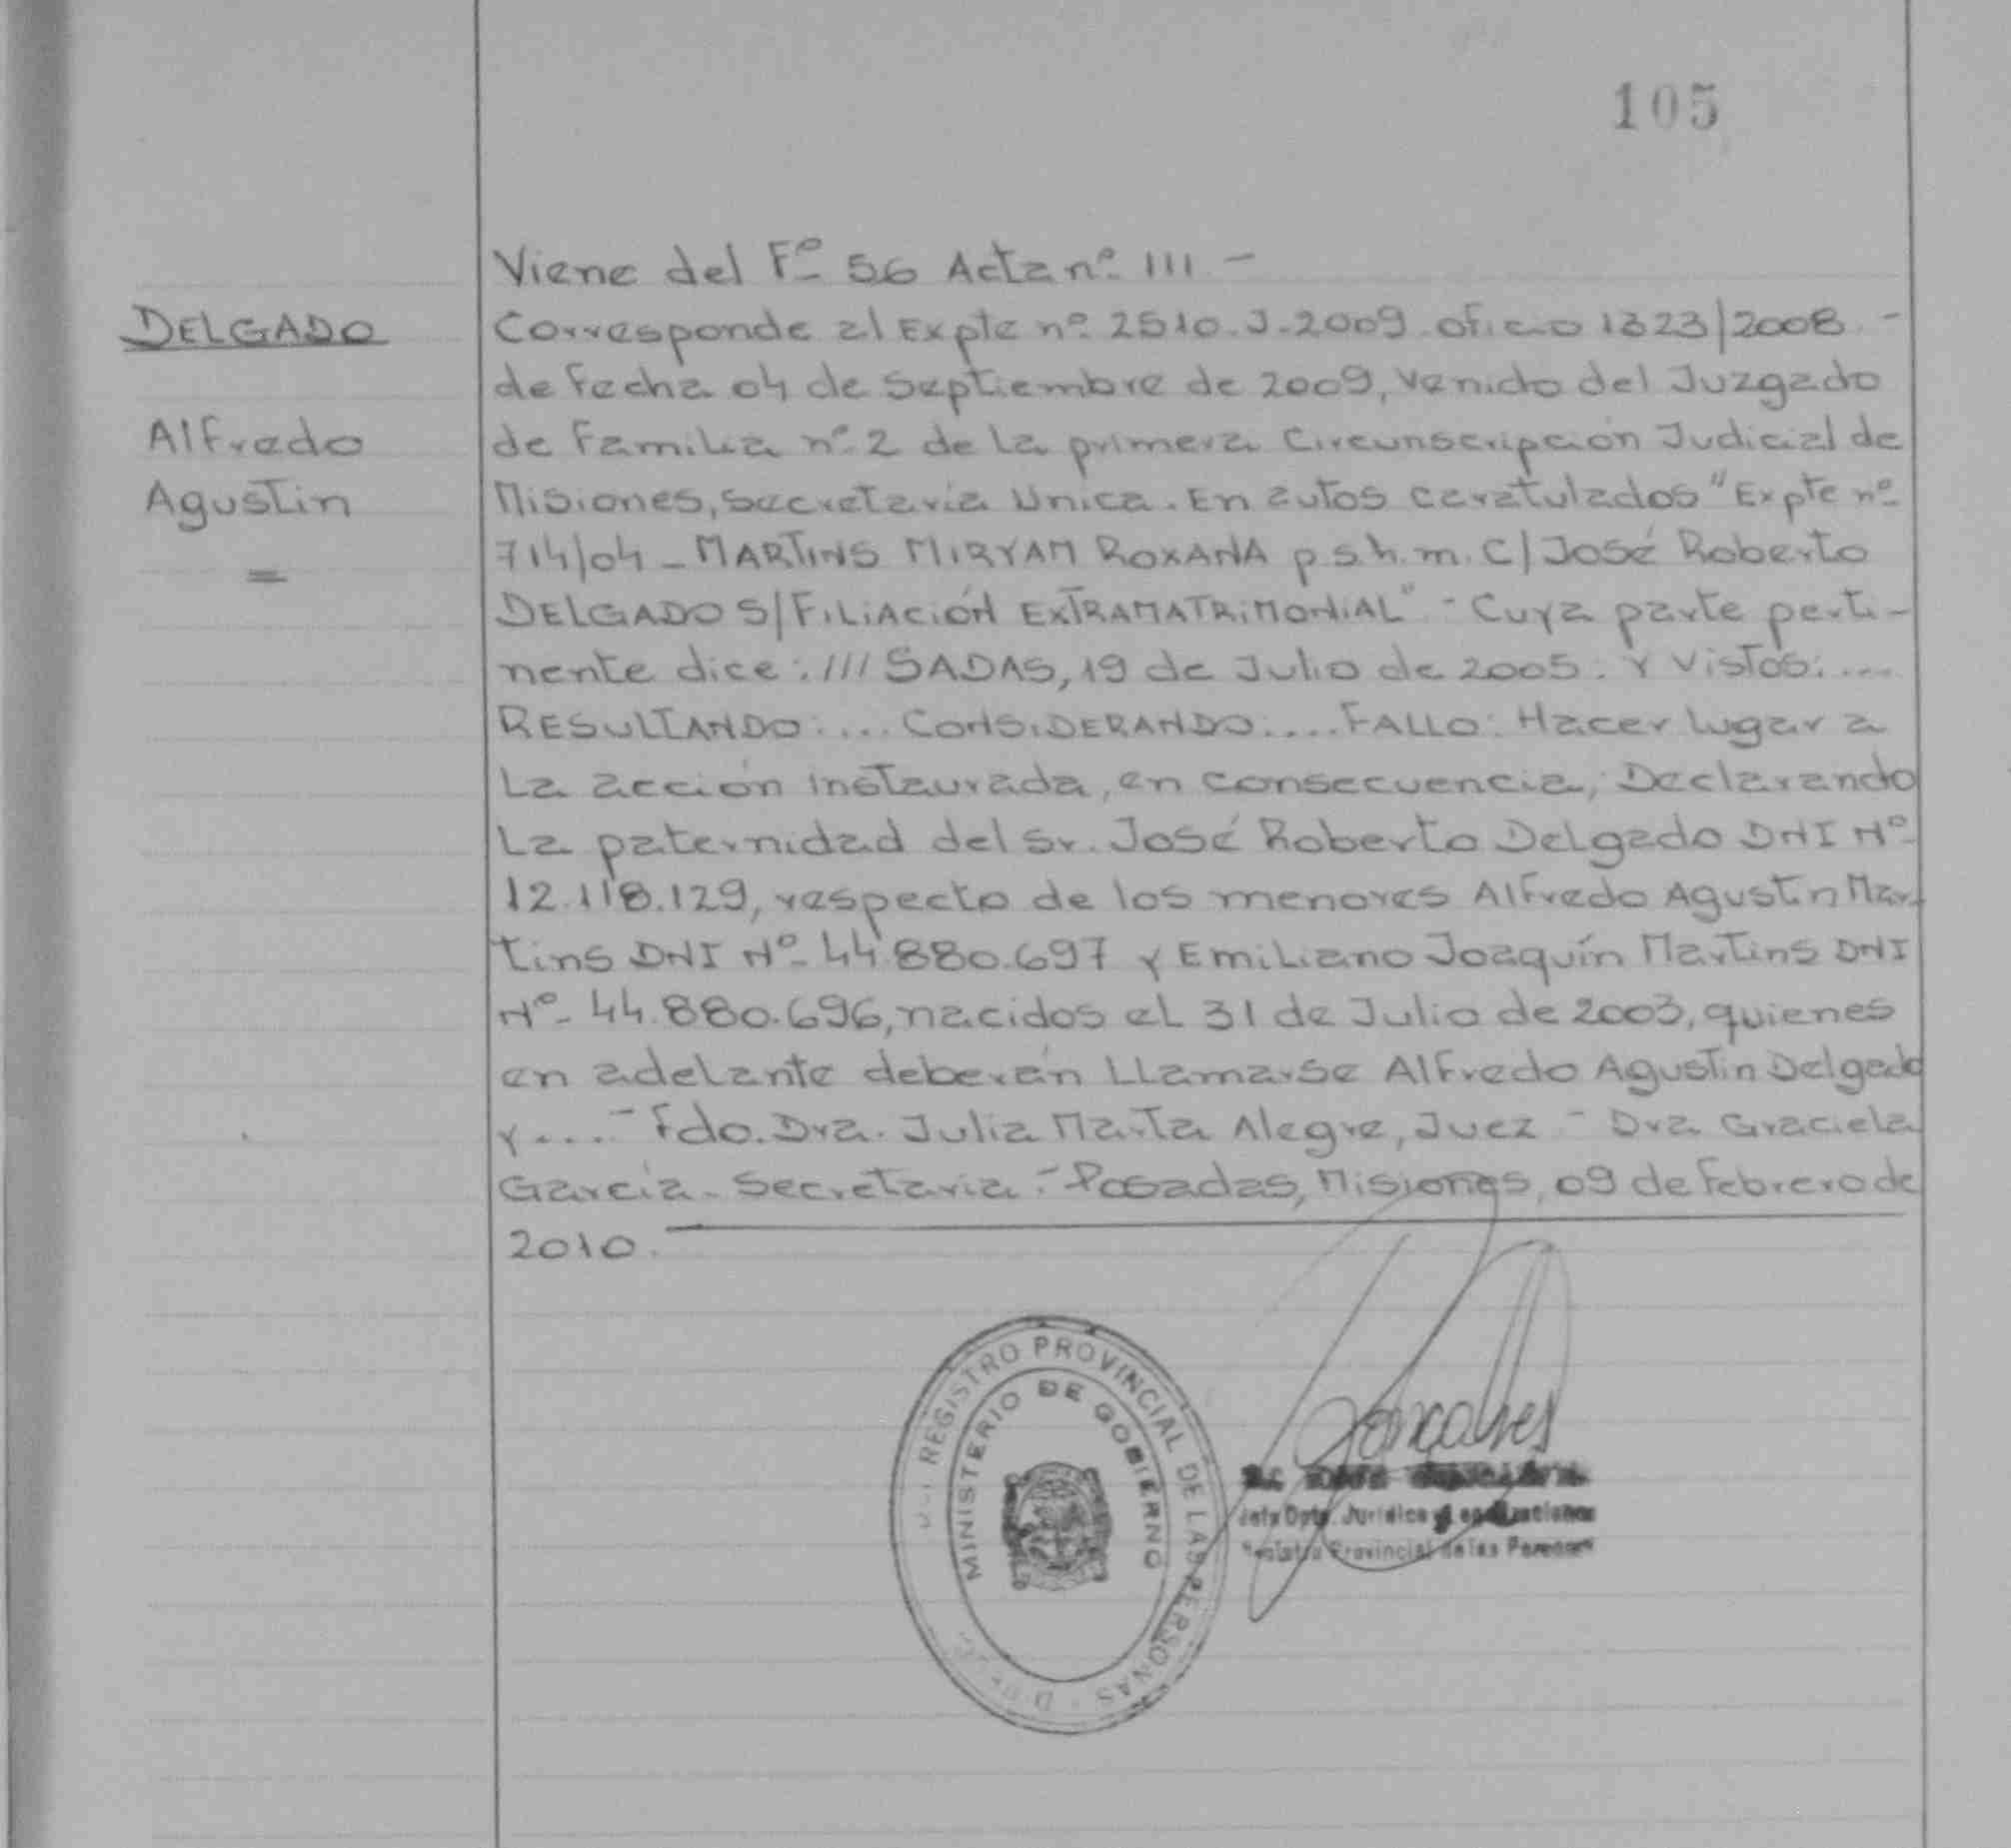 105
Viene del Fº 56 Acta nº 111 -
DELGADO
Alfredo
Agustin
=
Corresponde al Expte nº 2510.J-2009 oficio 1323/2008. -
de fecha 04 de Septiembre de 2009, venido del Juzgado
de Familia nº 2 de La primera Circunscripción Judicial de
Misiones, Secretaría Unica. En autos caratulados "Expte nº
714/04 - MARTINS MIRYAM ROXANA p.s.h.m. C/ José Roberto
DELGADO S/ FILIACIÓN EXTRAMATRIMONIAL" - Cuya parte perti-
nente dice: /// SADAS, 19 de Julio de 2005: Y Vistos: ....
RESULTANDO: .... CONSIDERANDO: .... FALLO: Hacer lugar a
La acción instaurada, en consecuencia, Declarando
La paternidad del sr. José Roberto Delgado DNI Nº
12.118.129, respecto de los menores Alfredo Agustin Mar-
tins DNI Nº 44.880.697 y Emiliano Joaquín Martins DNI
Nº 44.880.696, nacidos el 31 de Julio de 2003, quienes
en adelante deberán LLamarse Alfredo Agustin Delgado
y .... - Fdo. Dra. Julia Marta Alegre, Juez - Dra Graciela
García - Secretaria - Posadas, Misiones, 09 de Febrero de
2010.
REGISTRO PROVINCIAL DE LAS PERSONAS
MINISTERIO DE GOBIERNO
Jefe Dpto. Jurídico
Registro Provincial de las Personas